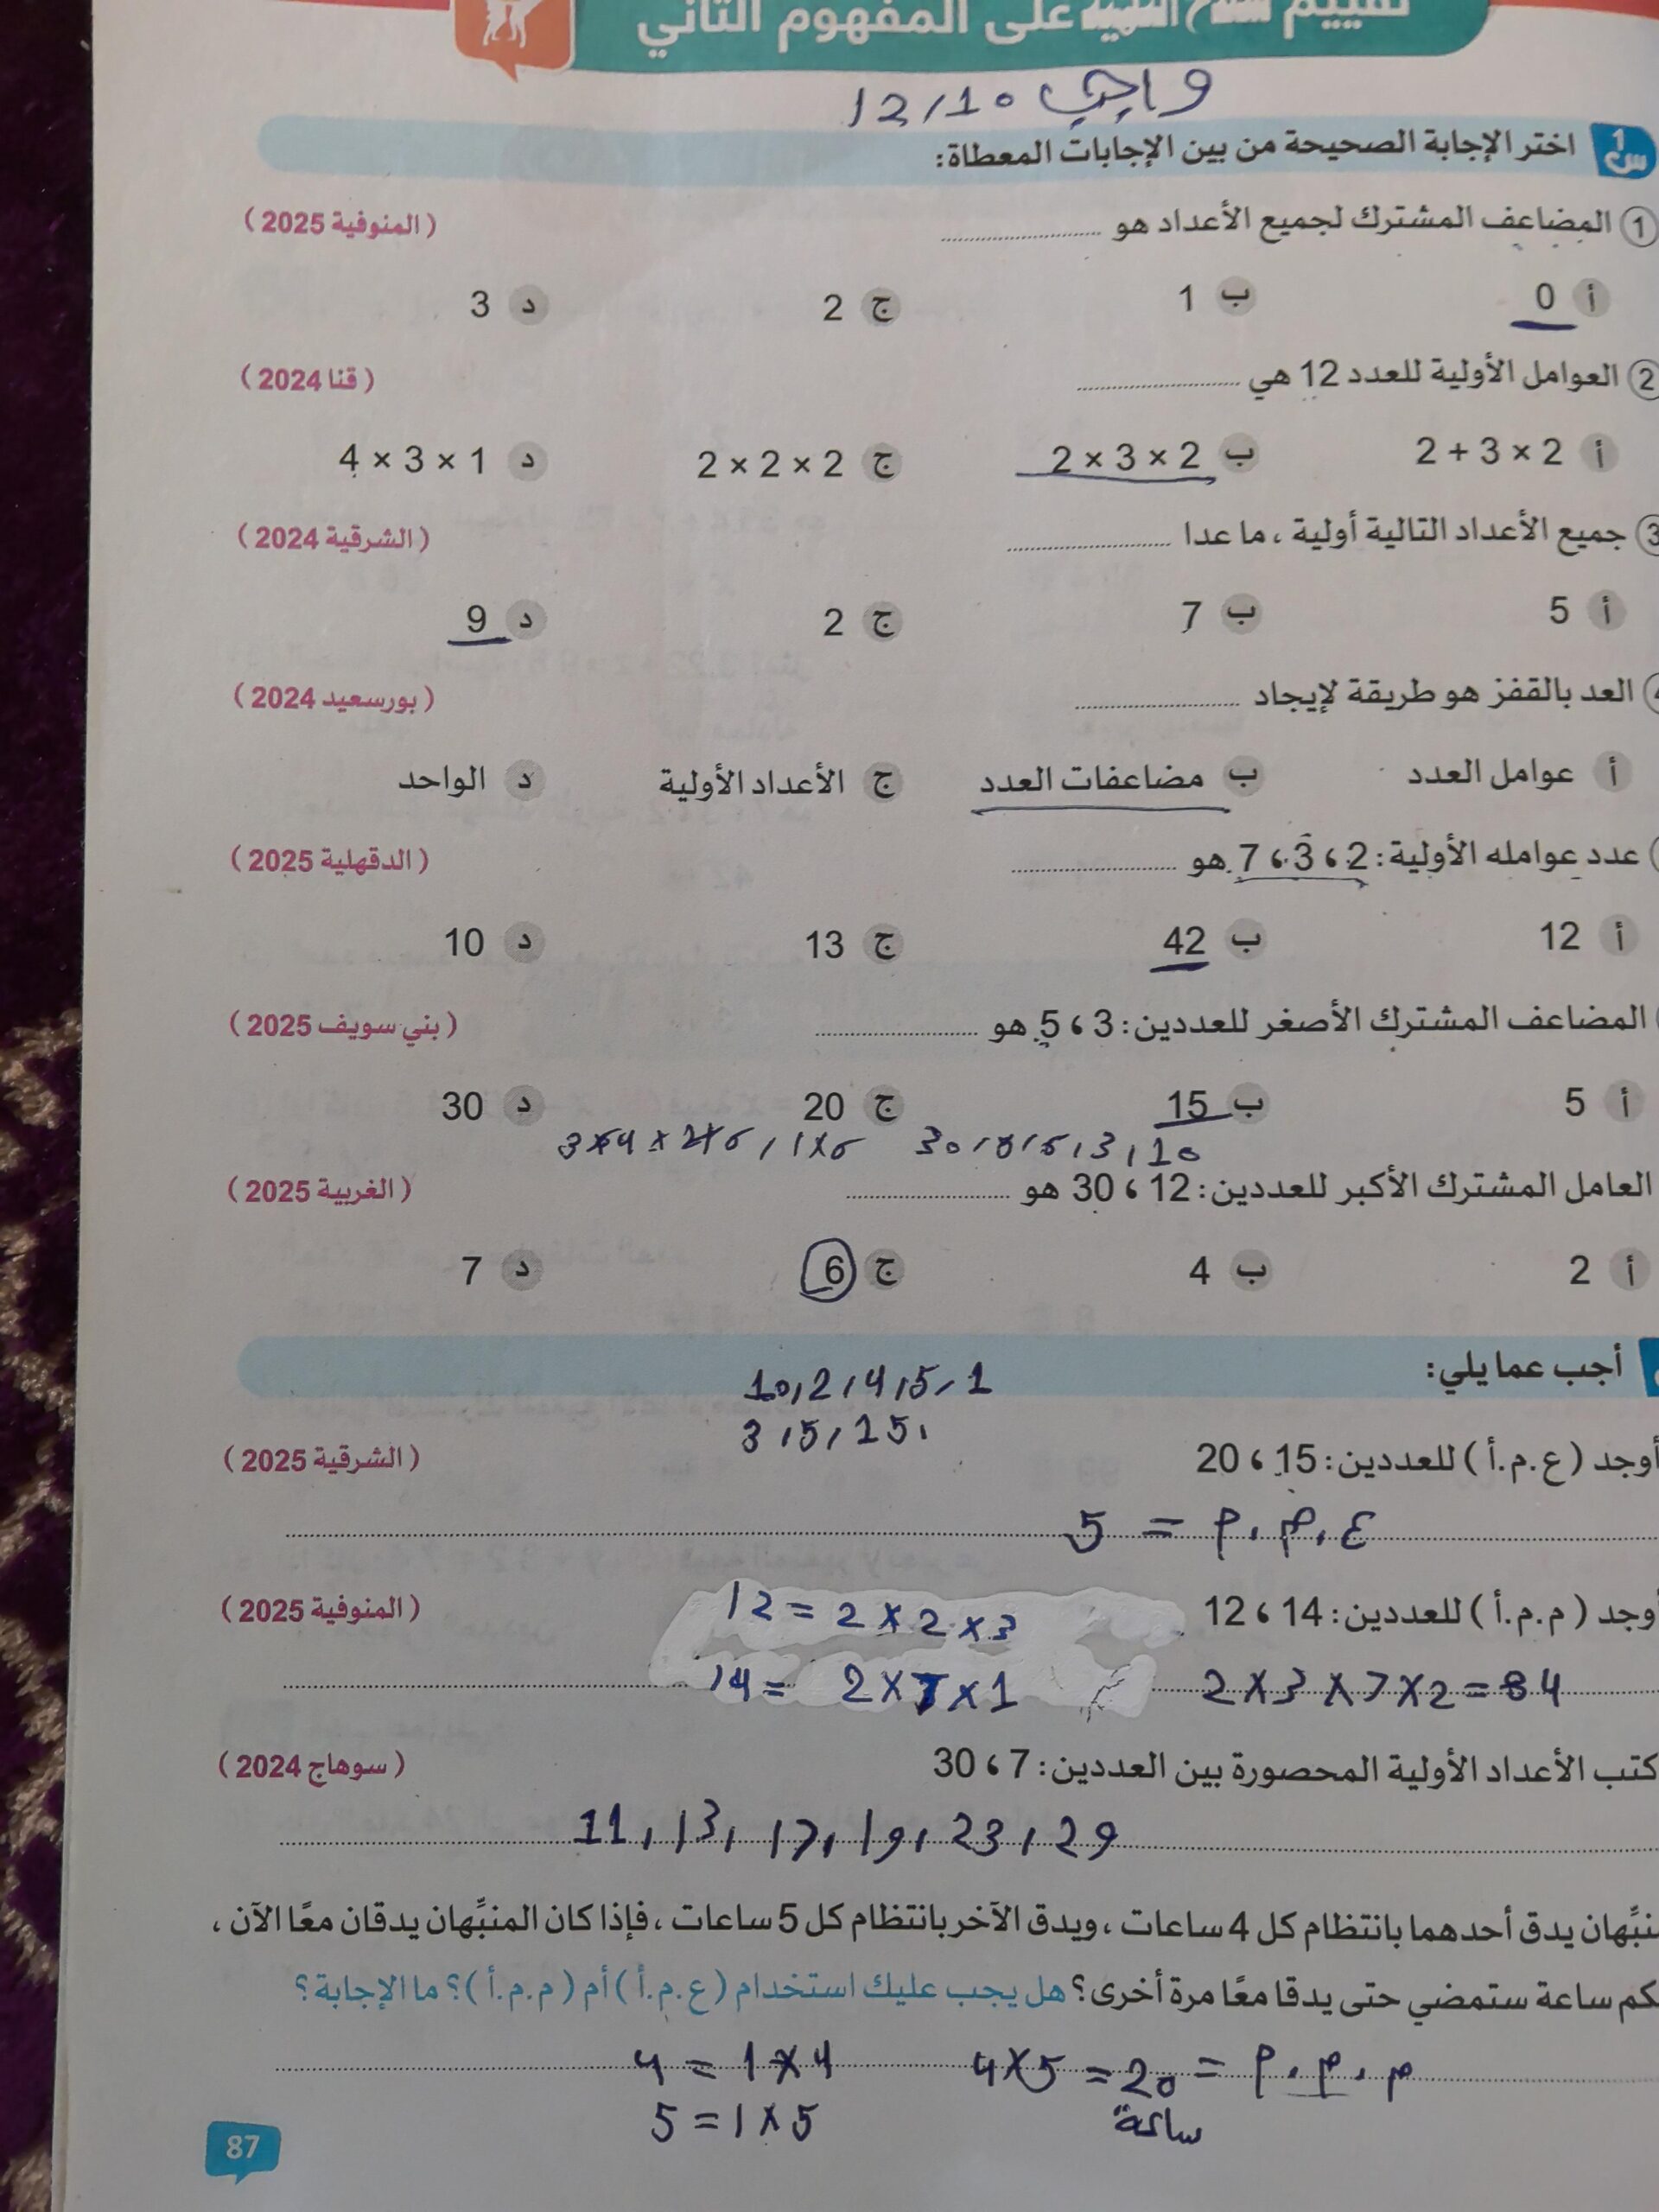 على المفهوم الثاني
واجب 12/10
س1 اختر الإجابة الصحيحة من بين الإجابات المعطاة:
1 المضاعف المشترك لجميع الأعداد هو .......... ( المنوفية 2025 )
أ 0 ب 1 ج 2 د 3
2 العوامل الأولية للعدد 12 هي .......... ( قنا 2024 )
أ 2 + 3 × 2 ب 2 × 3 × 2 ج 2 × 2 × 2 د 4 × 3 × 1
3 جميع الأعداد التالية أولية ، ما عدا .......... ( الشرقية 2024 )
أ 5 ب 7 ج 2 د 9
العد بالقفز هو طريقة لإيجاد .......... ( بورسعيد 2024 )
أ عوامل العدد ب مضاعفات العدد ج الأعداد الأولية د الواحد
عدد عوامله الأولية : 2 ، 3 ، 7 هو .......... ( الدقهلية 2025 )
أ 12 ب 42 ج 13 د 10
المضاعف المشترك الأصغر للعددين : 3 ، 5 هو .......... ( بني سويف 2025 )
أ 5 ب 15 ج 20 د 30
العامل المشترك الأكبر للعددين : 12 ، 30 هو .......... ( الغربية 2025 )
أ 2 ب 4 ج 6 د 7
أجب عما يلي:
10, 2, 4, 5, 1
3, 5, 15,
أوجد ( ع.م.أ ) للعددين : 15 ، 20 ( الشرقية 2025 )
ع.م.م = 5
أوجد ( م.م.أ ) للعددين : 14 ، 12 ( المنوفية 2025 )
12 = 2 × 2 × 3
14 = 2 × 7 × 1
2 × 3 × 7 × 2 = 84
كتب الأعداد الأولية المحصورة بين العددين : 7 ، 30 ( سوهاج 2024 )
11, 13, 17, 19, 23, 29
منبِّهان يدق أحدهما بانتظام كل 4 ساعات ، ويدق الآخر بانتظام كل 5 ساعات ، فإذا كان المنبِّهان يدقان معًا الآن ،
كم ساعة ستمضي حتى يدقا معًا مرة أخرى؟ هل يجب عليك استخدام ( ع.م.أ ) أم ( م.م.أ )؟ ما الإجابة؟
م.م.م = 4 × 5 = 20
ساعة
4 = 1 × 4
5 = 1 × 5
87